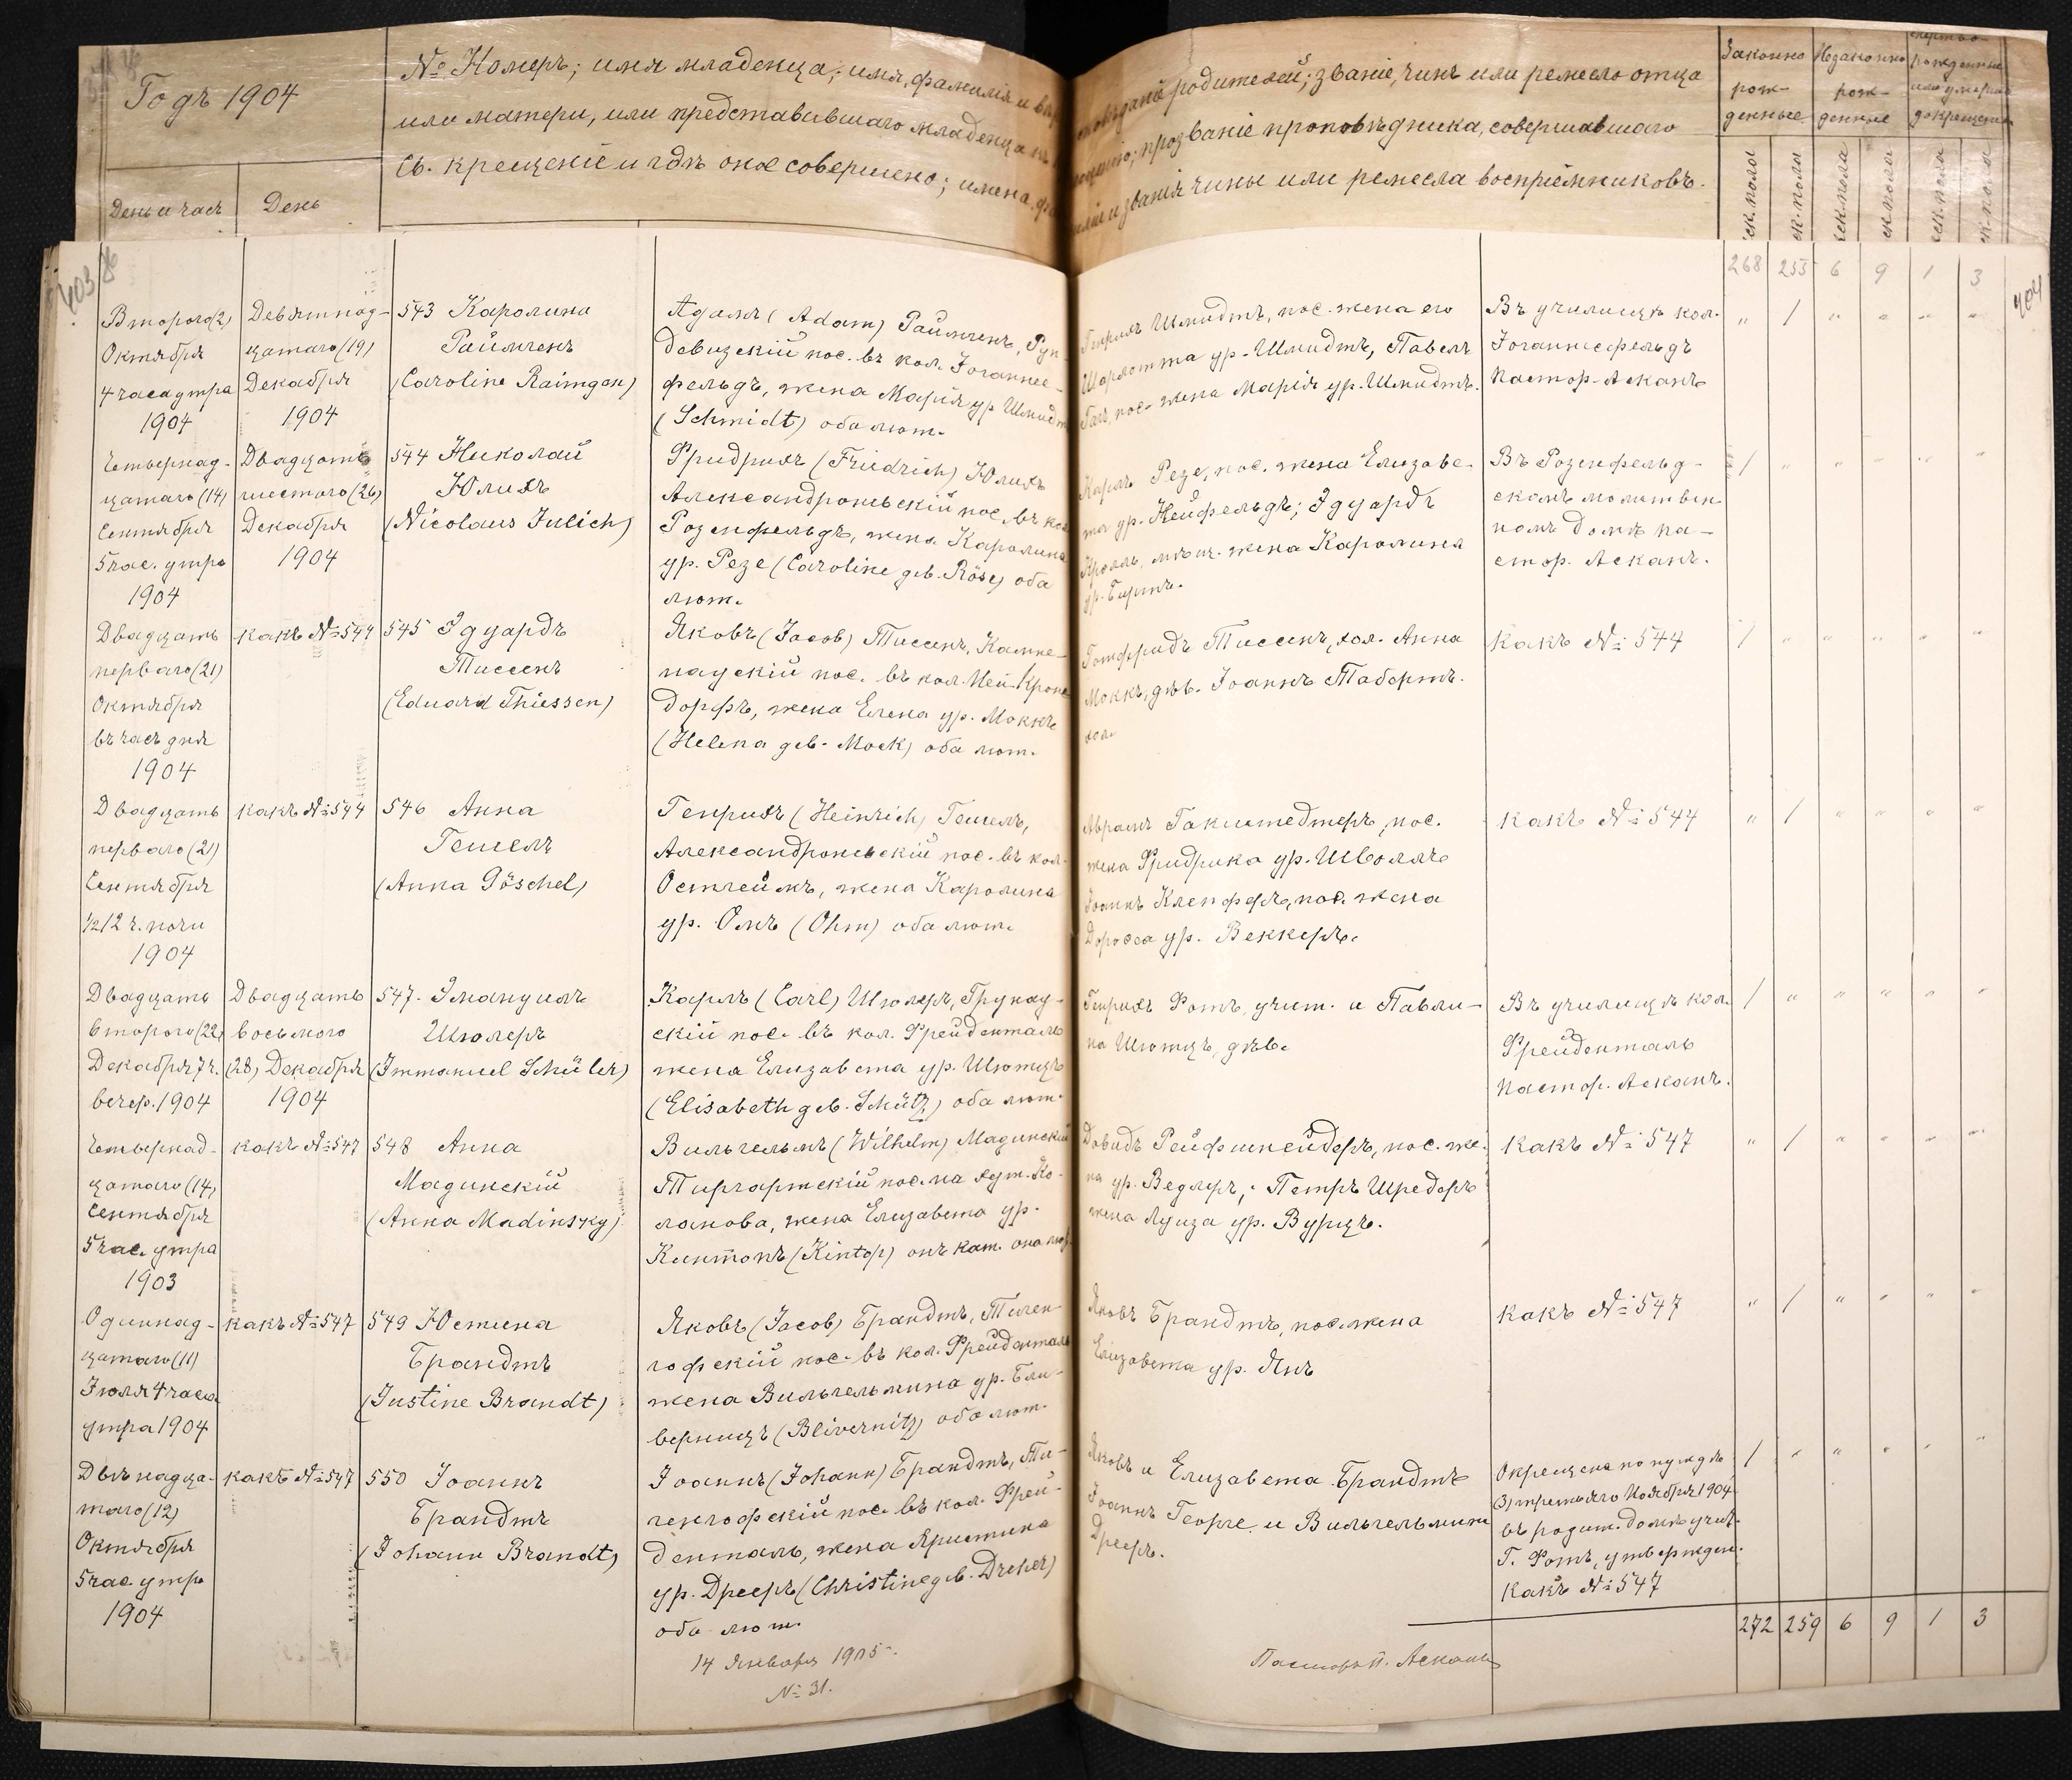 Годъ 1904
№ Номеръ; имя младенца; имя, фамилія и
или матери, или представившаго младенца
Св. крещеніе и гдѣ оное совершено; имена
День и часъ
День
родителей; званіе, чинъ или ремесло отца
прозваніе проповѣдника, совершавшаго
и званія чины или ремесла воспріемниковъ.
Законно рож- денные
Незаконно рож- денные
403
404
268 255 6 9 1 3
Второго (2)
Октября
4 часа утра
1904
Девятнад-
цатаго (19)
Декабря
1904
543 Каролина
Раймгенъ
(Caroline Raimgen)
Адамъ (Adam) Раймгенъ, Рун-
девизскій пос. въ кол. Іоганнес-
фельдъ, жена Марія ур. Шмидт
(Schmidt) оба лют.
Шмидтъ, пос. жена его
Шарлотта ур. Шмидтъ, Павелъ
пос. жена Марія ур. Шмидтъ.
Въ училищѣ кол.
Іоганнесфельдъ
Пастор. Асканъ
" 1 " " " "
Четырнад-
цатаго (14)
Сентября
5 час. утра
1904
Двадцать
шестого (26)
Декабря
1904
544 Николай
Юлихъ
(Nicolaus Julich)
Фридрихъ (Friedrich) Юлихъ
Александроневскій пос. въ кол
Розенфельдъ, жена Каролина
ур. Резе (Caroline geb. Röse) оба
лют.
Карлъ Резе, пос. жена Елизаве-
та ур. Нейфельдъ; Эдуардъ
Кролль, мѣщ. жена Каролина
ур.
Въ Розенфельд-
скомъ молитвен
номъ домѣ па-
стор. Асканъ.
1 " " " " "
Двадцать
перваго (21)
Октября
въ часъ дня
1904
какъ № 544
545 Эдуардъ
Тиссенъ
(Eduard Thiessen)
Яковъ (Jacob) Тиссенъ,
наускій пос. въ кол. Ней-Кронс
дорфъ, жена Елена ур. Моккъ
(Helena geb. Mock) оба лют.
Готфридъ Тиссенъ, хол. Анна
Моккъ, дѣв. Іоаннъ Табертъ.
хол.
какъ № 544
1 " " " " "
Двадцать
перваго (21)
Сентября
½12 ч. ночи
1904
какъ № 544
546 Анна
Гешелъ
(Anna Göschel)
Генрихъ (Heinrich) Гешелъ,
Александроневскій пос. въ кол.
Остгеймъ, жена Каролина
ур. Омъ (Ohm) оба лют.
Абрамъ Гакштедтеръ, пос.
жена Фридрика ур. Шволлъ
Іоаннъ Клепфферъ, пос. жена
ур. Беккеръ.
какъ № 544
" 1 " " " "
Двадцать
второго (22)
Декабря 7 ч.
вечер. 1904
Двадцать
восьмого
(28) Декабря
1904
547. Эмануилъ
Шюлеръ
(Immanuel Schüler)
Карлъ (Carl) Шюлеръ, Грунау-
скій пос. въ кол. Фрейденталь
жена Елизавета ур. Шютцъ
(Elisabeth geb. Schütz) оба лют.
Генрихъ Ротъ, учит. и Павли-
на Шютцъ, дѣв.
Въ училищѣ кол.
Фрейденталь
Пастор. Асканъ.
1 " " " " "
Четырнад-
цатаго (14)
Сентября
5 час. утра
1903
какъ № 547
548 Анна
Мадинскій
(Anna Madinsky)
Вильгельмъ (Wilhelm) Мадинскій
Тиргартскій пос. на хут. Ко-
ланова, жена Елизавета ур.
Кинтопъ (Kintop) онъ кат. она лют.
Давидъ Рейфшнейдеръ, пос. же-
на ур. Ведлеръ, Петръ Шредеръ
жена Луиза ур. Вурцъ.
какъ № 547
" 1 " " " "
Одиннад-
цатаго (11)
Іюля 4 часа
утра 1904
какъ № 547
549 Юстина
Брандтъ
(Justine Brandt)
Яковъ (Jacob) Брандтъ, Тиген-
гофскій пос. въ кол. Фрейденталь
жена Вильгельмина ур. Бли-
верницъ (Blivernitz) оба лют.
Яковъ Брандтъ, пос. жена
Елизавета ур. Янъ
какъ № 547
" 1 " " " "
Двѣнадца-
таго (12)
Октября
5 час. утр.
1904
какъ № 547
550 Іоаннъ
Брандтъ
(Johann Brandt)
Іоаннъ (Johann) Брандтъ, Ти-
генгофскій пос. въ кол. Фрей-
денталь, жена Христина
ур. Дрееръ (Christine geb. Dreher)
оба лют.
Яковъ и Елизавета Брандтъ
Іоаннъ Георге и Вильгельмина
Дрееръ.
Окрещена по нуждѣ
(3) третьяго Ноября 1904
въ родит. домѣ учит.
Г. Ротъ, утвержден.
какъ № 547
1 " " " " "
272 259 6 9 1 3
14 Января 1905.
№ 31.
Пасторъ П. Асканъ